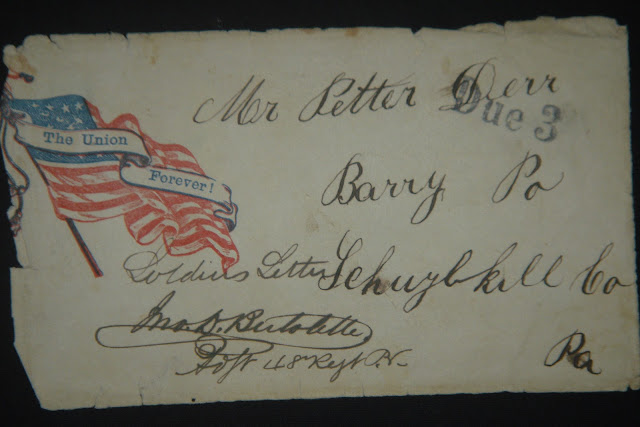 Mr Petter Derr
Due 3
The Union
Forever!
Barry Po
Soldiers Letter
Schuylkill Co
Jno. D. Bertolette
Adjt 48 Regt P.V.
Pa